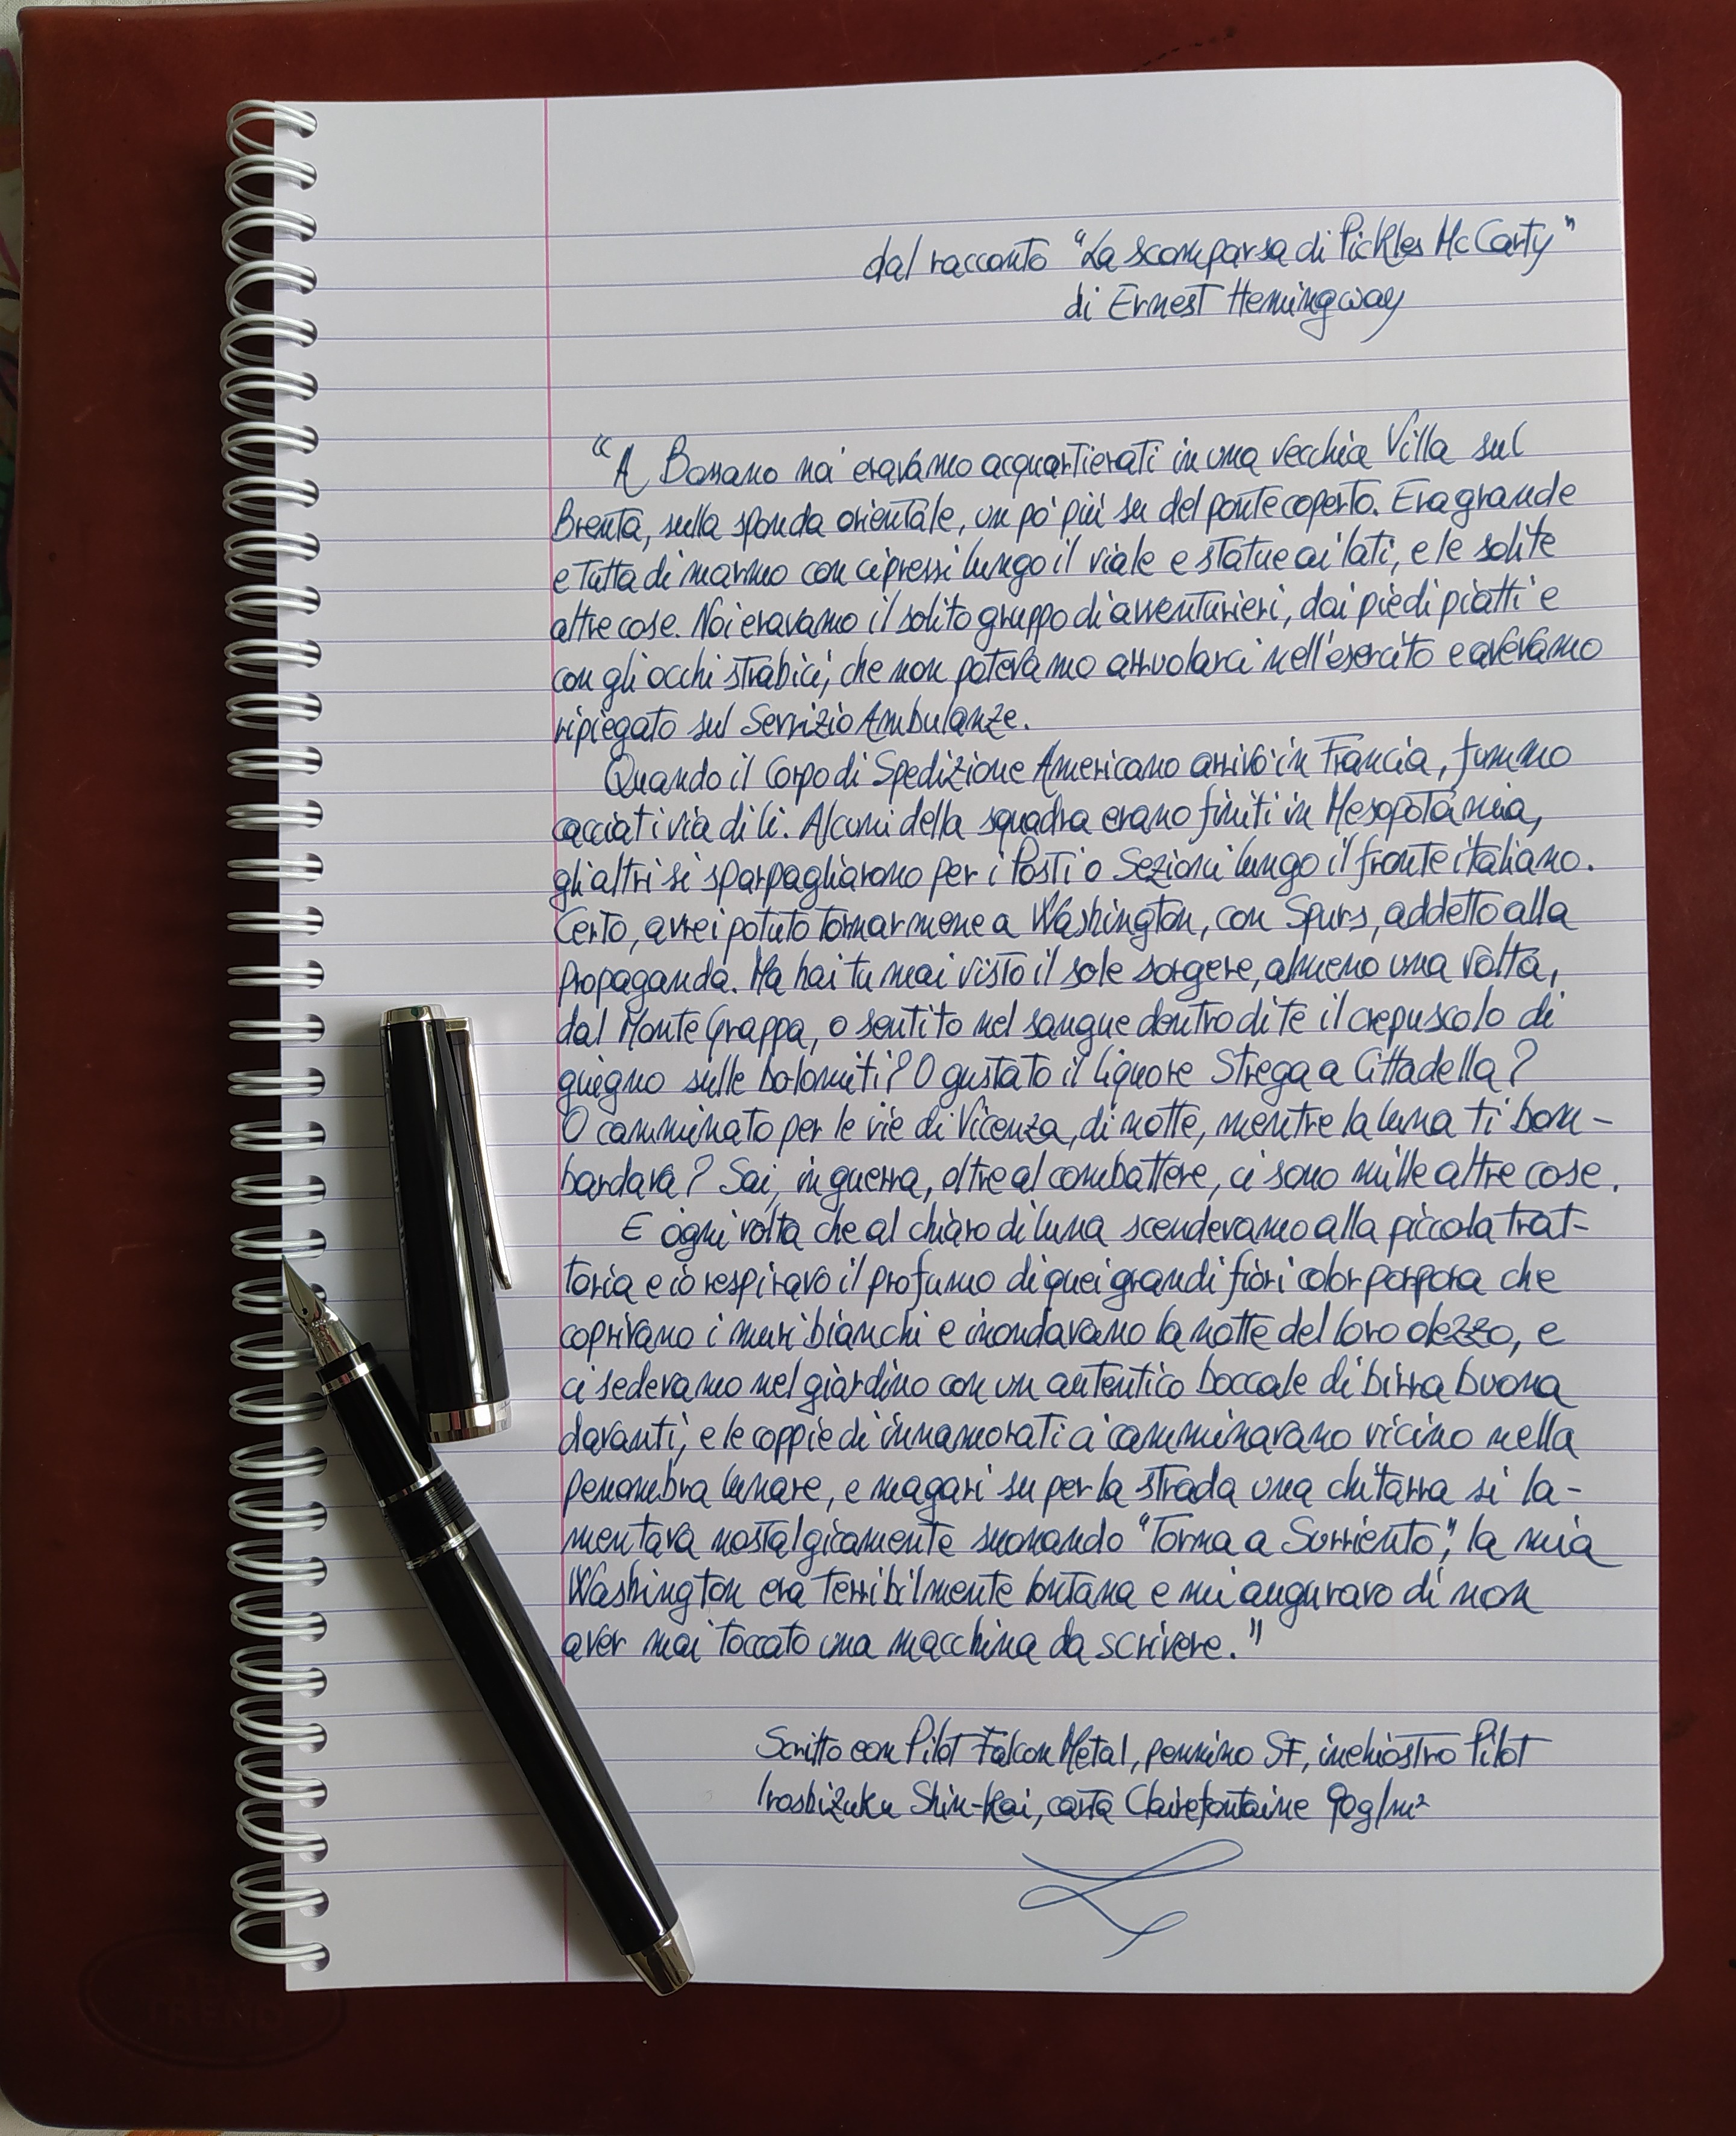 dal racconto "La scomparsa di Pickles McCarty"
di Ernest Hemingway
"A Bassano noi eravamo acquartierati in una vecchia Villa sul
Brenta, sulla sponda orientale, un po' più su del ponte coperto. Era grande
e tutta di marmo con cipressi lungo il viale e statue ai lati, e le solite
altre cose. Noi eravamo il solito gruppo di avventurieri, dai piedi piatti e
con gli occhi strabici, che non potevamo arruolarci nell'esercito e avevamo
ripiegato sul Servizio Ambulanze.
Quando il Corpo di Spedizione Americano arrivò in Francia, fummo
cacciati via di lì. Alcuni della squadra erano finiti in Mesopotamia,
gli altri si sparpagliarono per i Posti o Sezioni lungo il fronte italiano.
Certo, avrei potuto tornarmene a Washington, con Spurs, addetto alla
propaganda. Ma hai tu mai visto il sole sorgere, almeno una volta,
dal Monte Grappa, o sentito nel sangue dentro di te il crepuscolo di
giugno sulle Dolomiti? O gustato il liquore Strega a Cittadella?
O camminato per le vie di Vicenza, di notte, mentre la luna ti bom-
bardava? Sai, in guerra, oltre al combattere, ci sono mille altre cose.
E ogni volta che al chiaro di luna scendevamo alla piccola trat-
toria e io respiravo il profumo di quei grandi fiori color porpora che
coprivano i muri bianchi e inondavano la notte del loro olezzo, e
ci sedevamo nel giardino con un autentico boccale di birra buona
davanti, e le coppie di innamorati ci camminavano vicino nella
penombra lunare, e magari su per la strada una chitarra si la-
mentava nostalgicamente suonando "Torna a Surriento", la mia
Washington era terribilmente lontana e mi auguravo di non
aver mai toccato una macchina da scrivere."
Scritto con Pilot Falcon Metal, pennino SF, inchiostro Pilot
Iroshizuku Shin-Kai, carta Clairefontaine 90g/m²
TREND